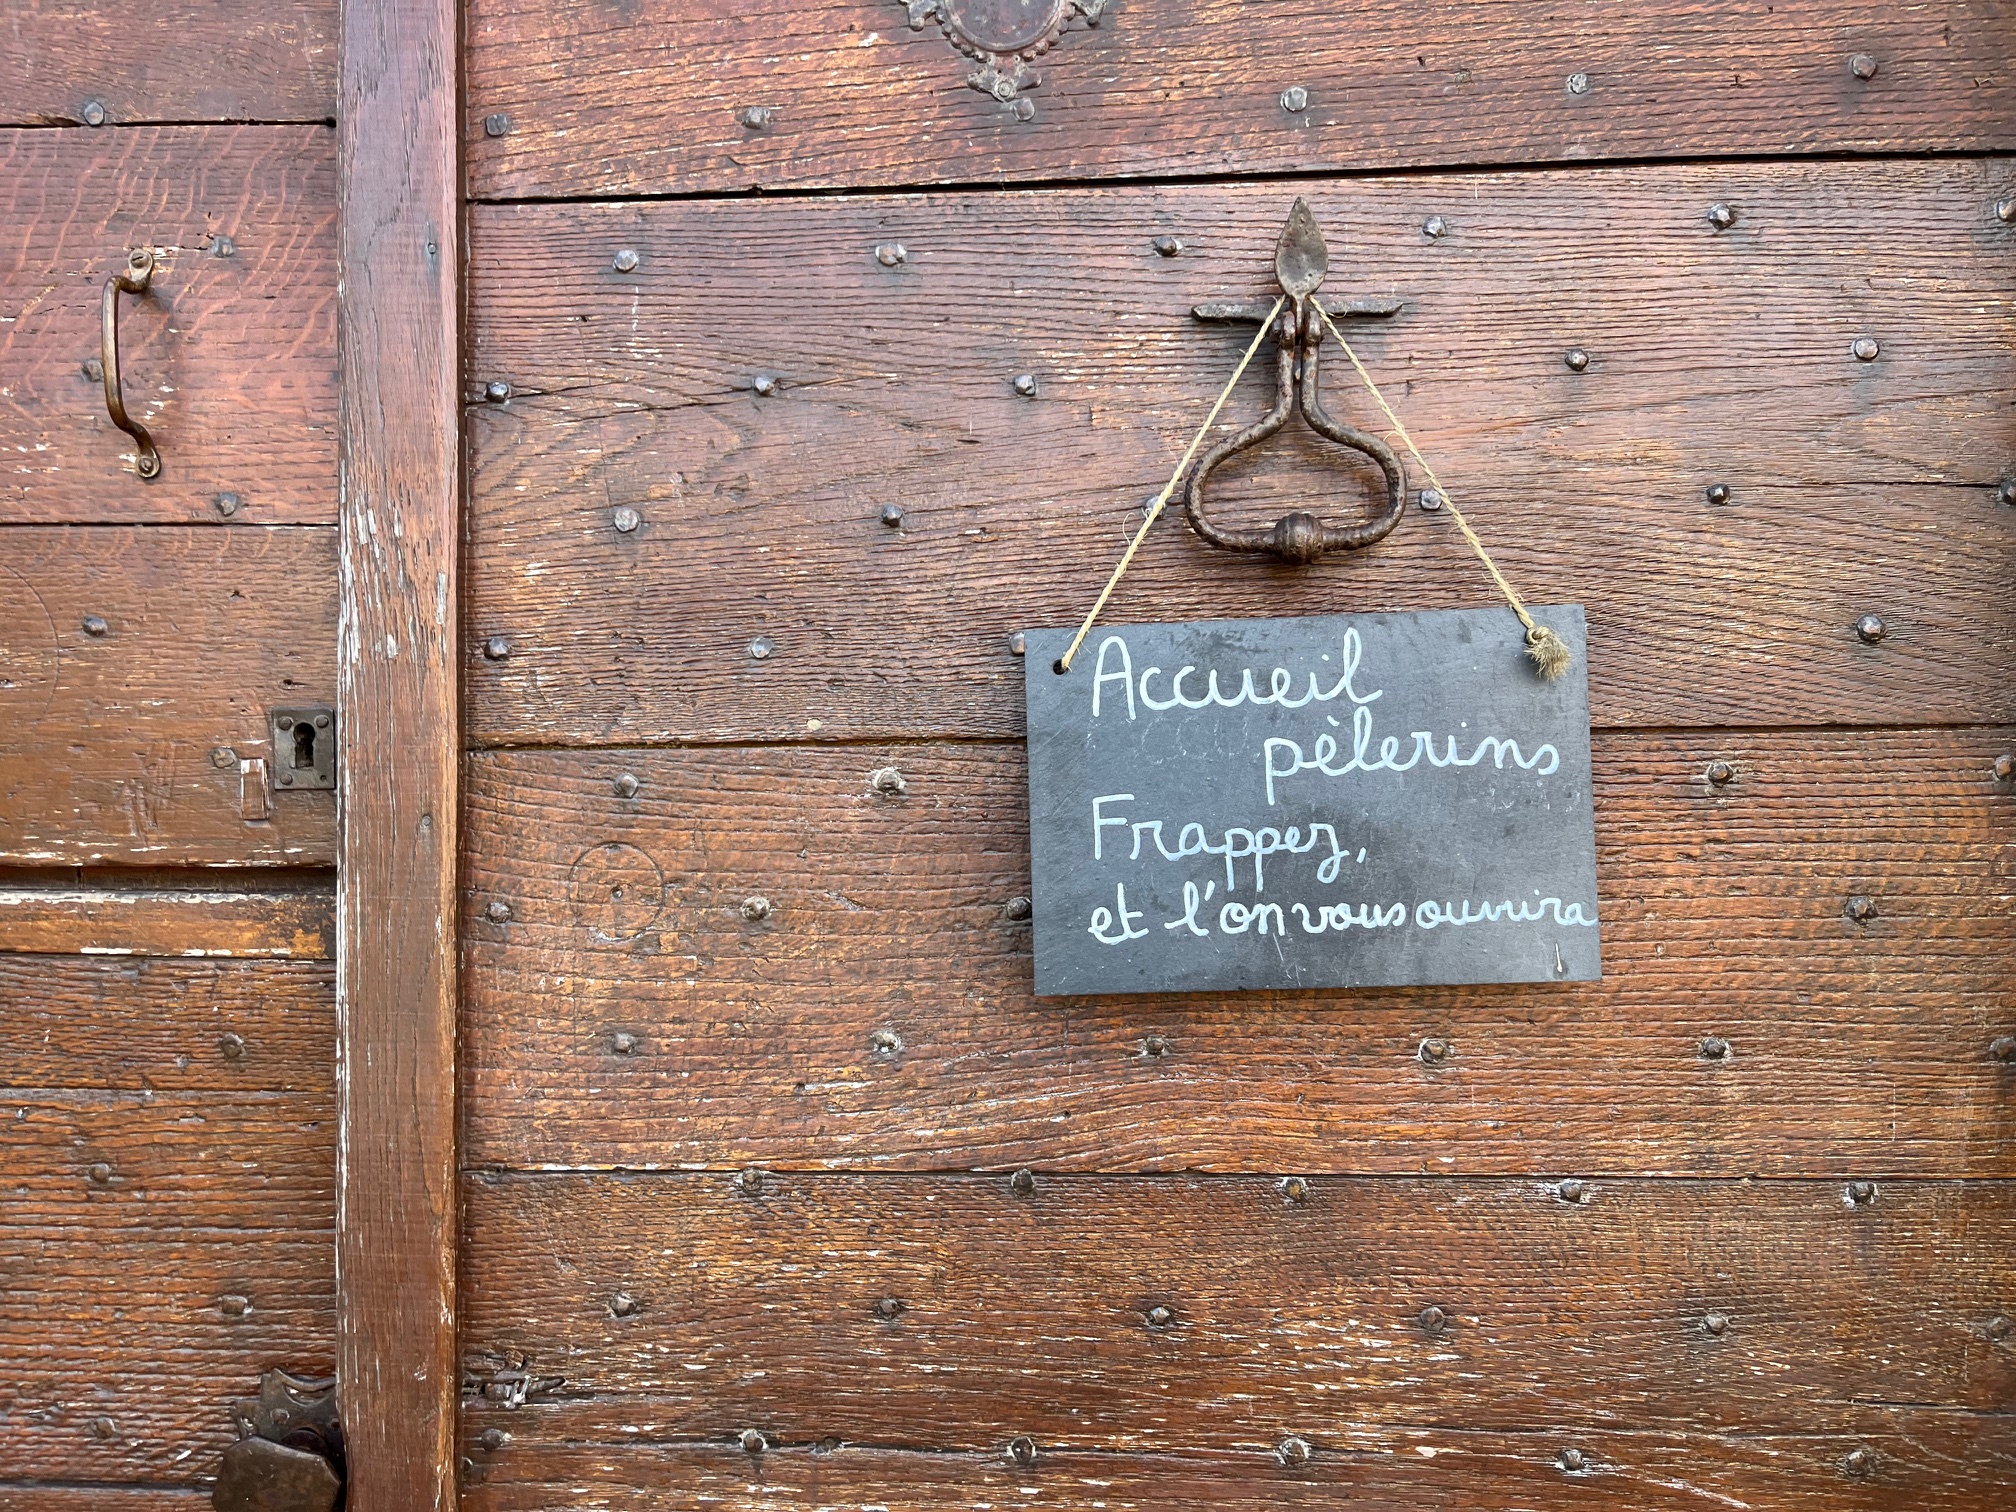 Accueil
pèlerins
Frappez,
et l'on vous ouvrira